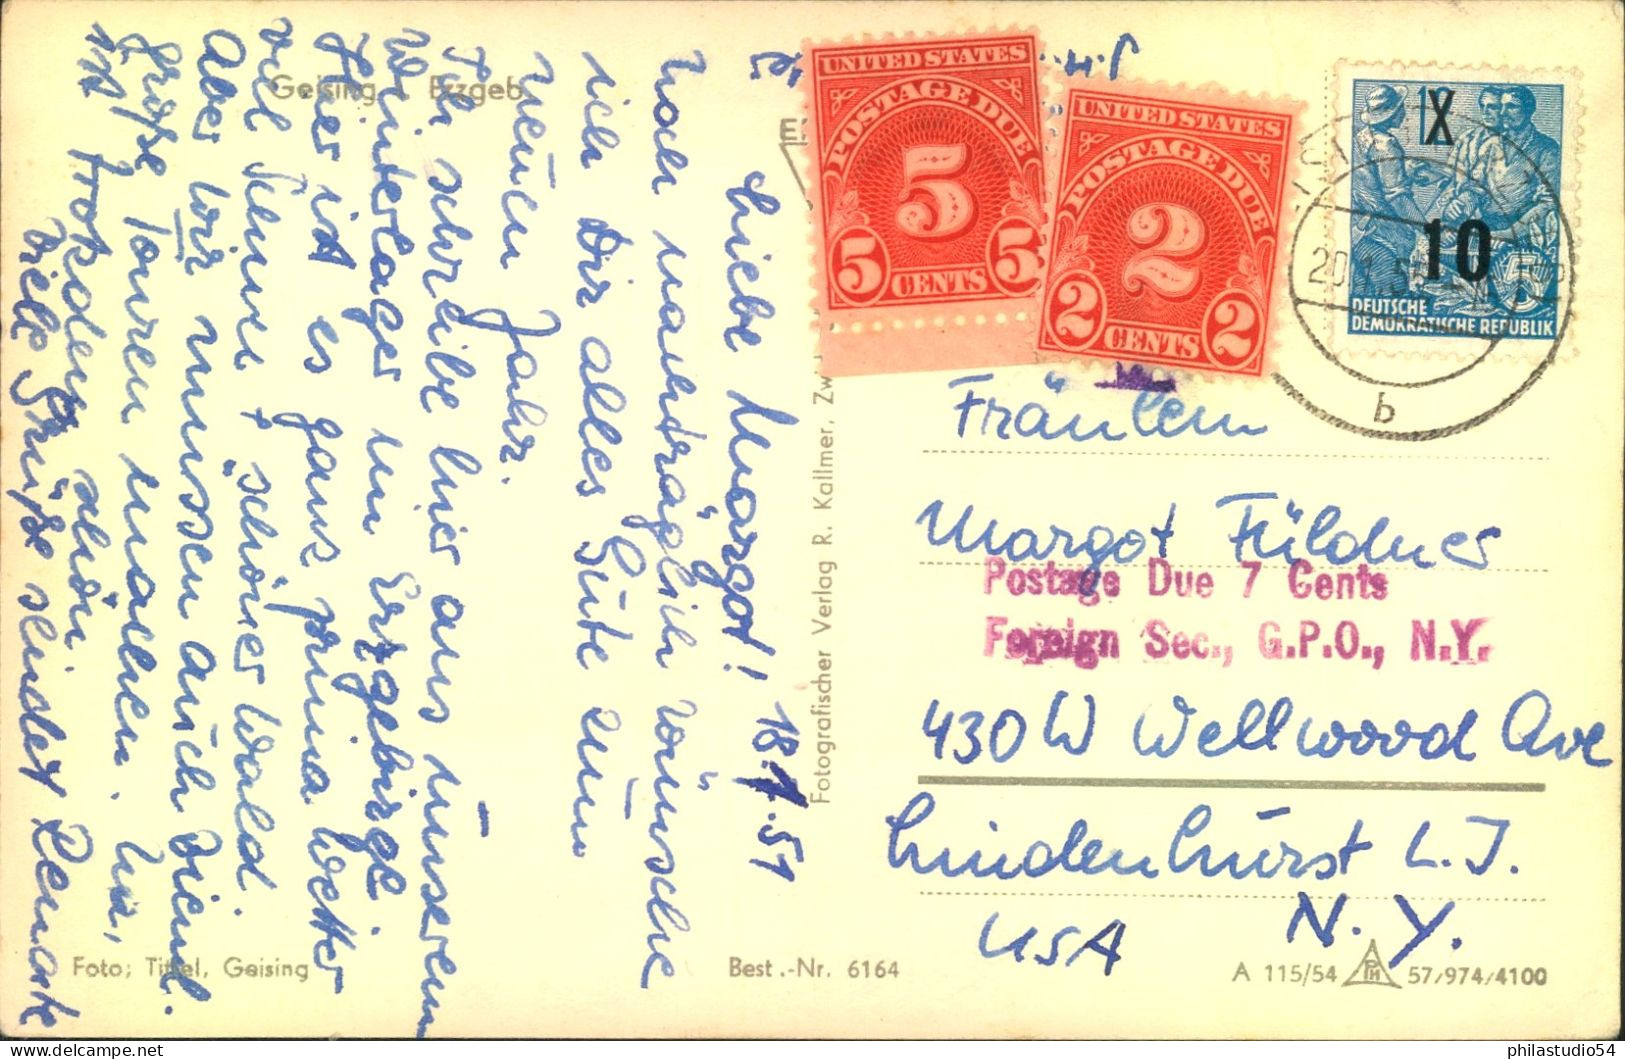 Geising i. Erzgeb.
Liebe Margot! 18.1.57
Noch nachträglich wünsche
ich Dir alles Gute zum
neuen Jahr.
Ich schreibe hier aus unserem
Winterlager im Erzgebirge.
Hier ist es ganz prima Wetter
viel Schnee + schöner Wald.
Aber wir müssen auch viel
große Touren machen. Na,
ist trotzdem schön.
Viele Grüße sendet Renate
Foto: Tittel, Geising
Best.-Nr. 6164
Fotografischer Verlag R. Kallmer, Zw
UNITED STATES
POSTAGE DUE
5
5 CENTS 5
UNITED STATES
POSTAGE DUE
2
2 CENTS 2
X
10
5
DEUTSCHE
DEMOKRATISCHE REPUBLIK
b
Fräulein
Margot Füldner
Postage Due 7 Cents
Foreign Sec., G.P.O., N.Y.
430 W Wellwood Ave
Lindenhurst L. I.
N. Y.
USA
A 115/54 57/974/4100
philastudio54